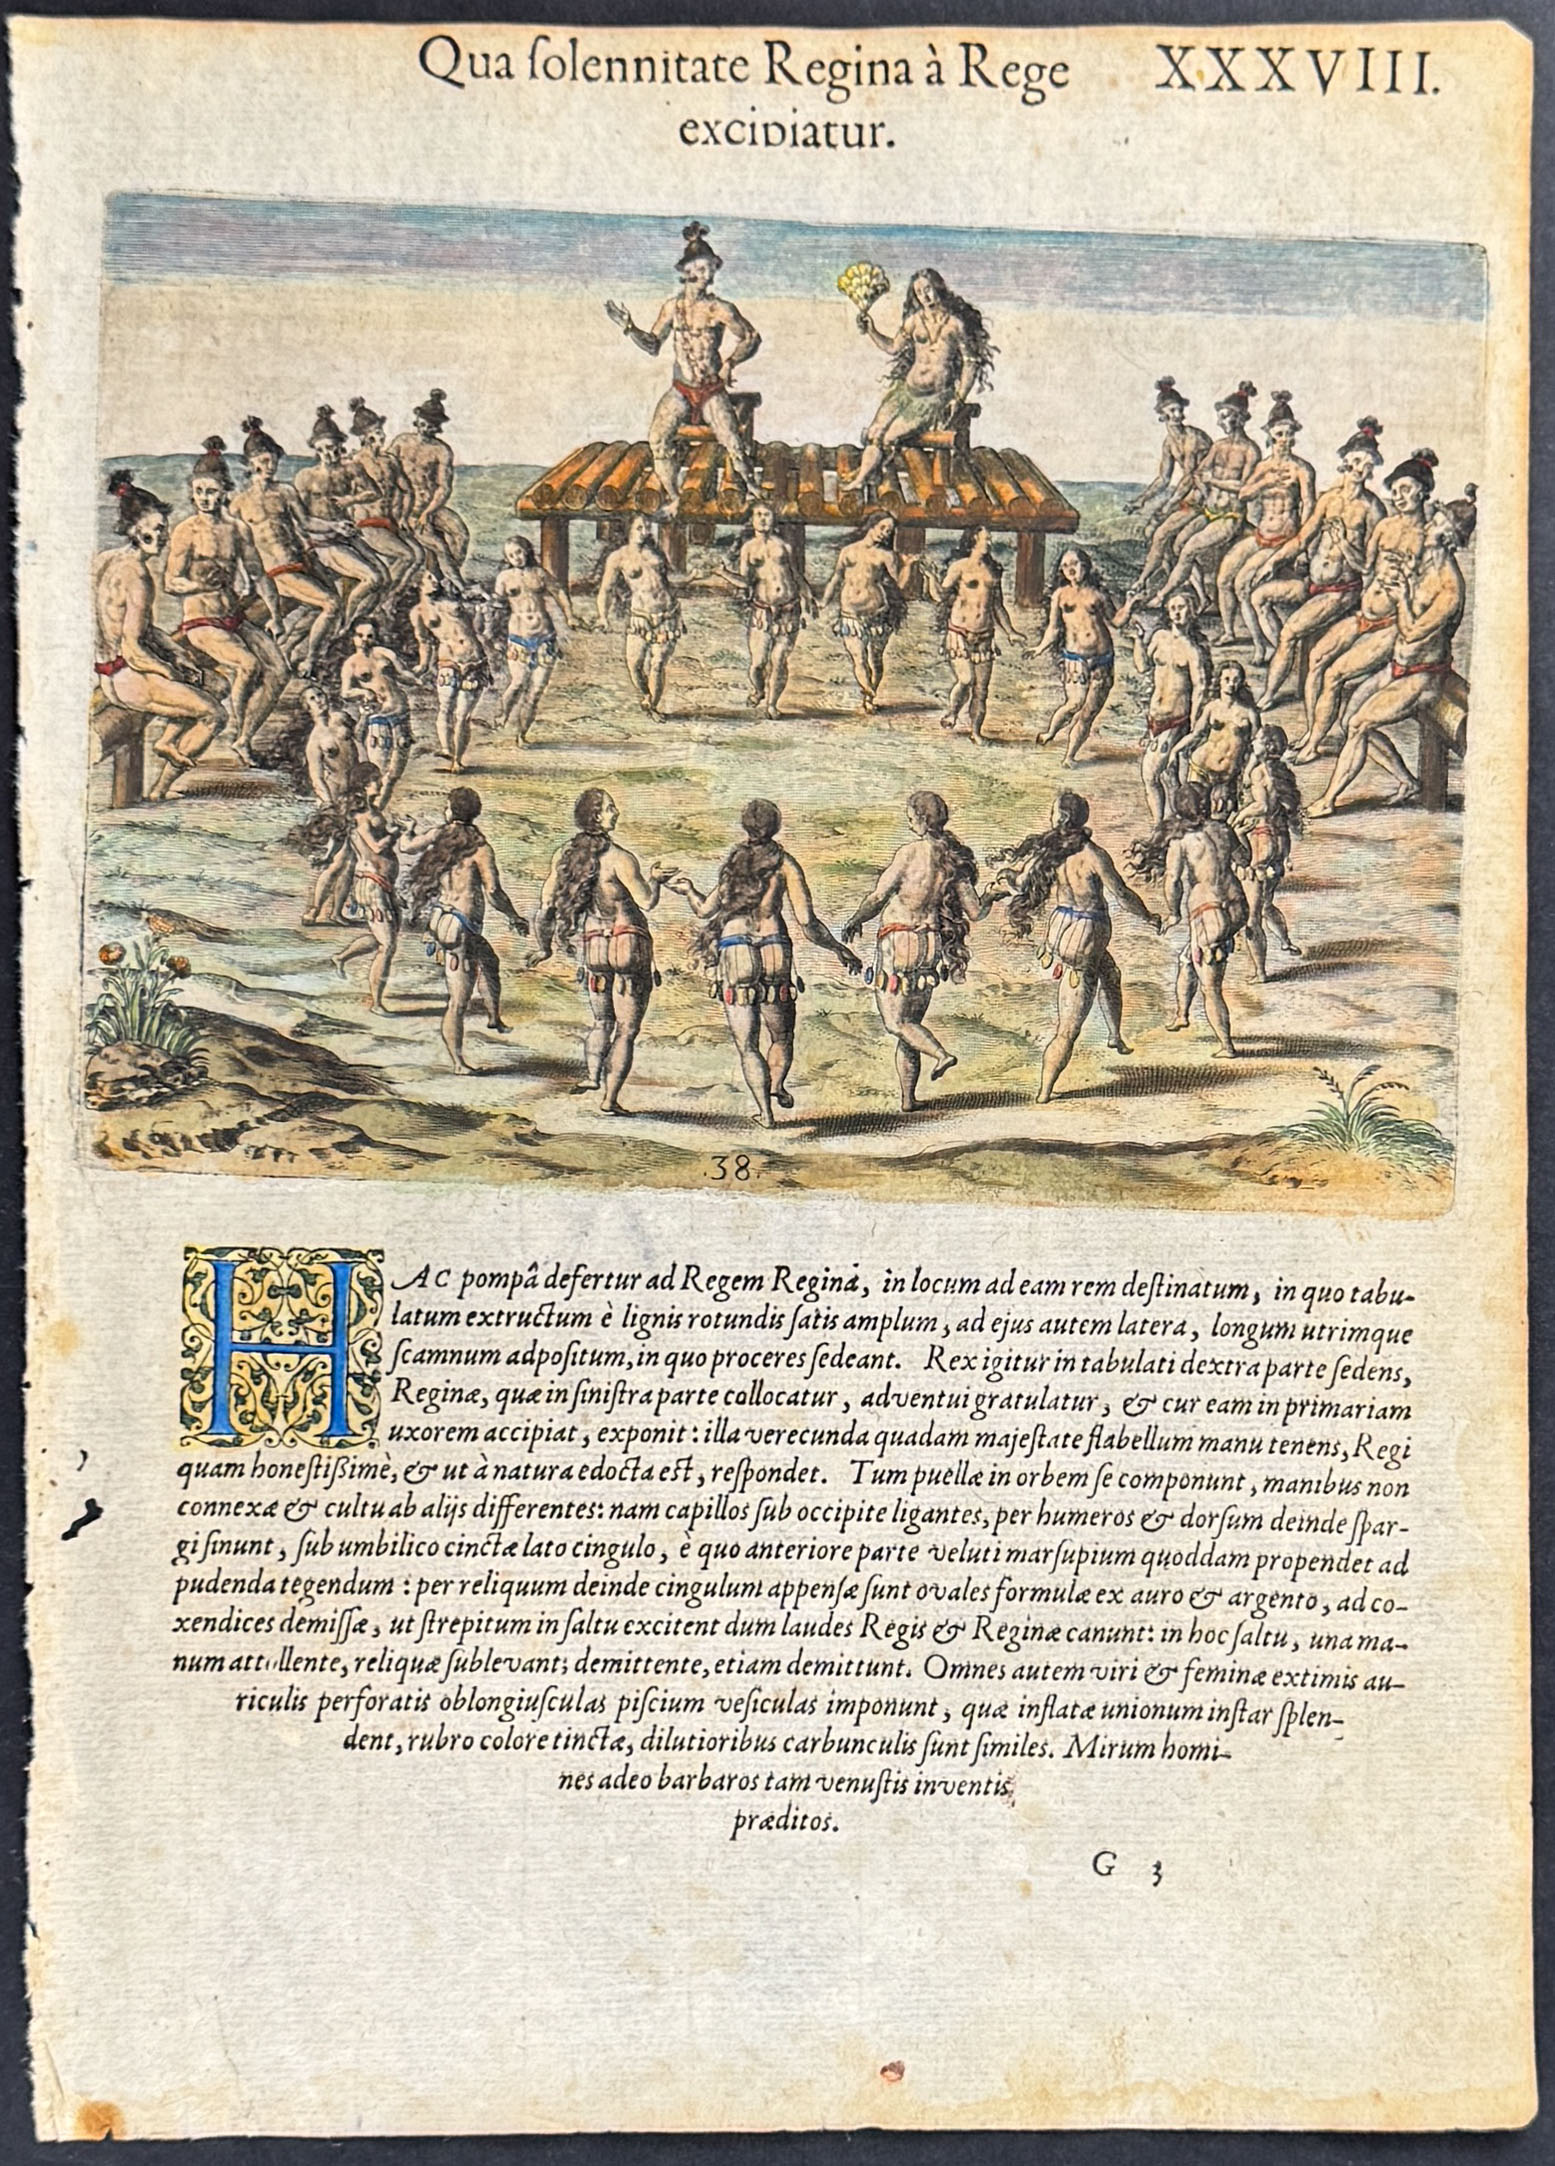 Qua ſolennitate Regina à Rege XXXVIII.
excipiatur.
.38.
HAC pompâ defertur ad Regem Regina, in locum ad eam rem deſtinatum, in quo tabu-
latum extructum è lignis rotundis ſatis amplum, ad ejus autem latera, longum utrimque
ſcamnum adpoſitum, in quo proceres ſedeant. Rex igitur in tabulati dextra parte ſedens,
Reginæ, quæ in ſiniſtra parte collocatur, adventui gratulatur, & cur eam in primariam
uxorem accipiat, exponit: illa verecunda quadam majeſtate flabellum manu tenens, Regi
quam honeſtißimè, & ut à natura edocta eſt, reſpondet. Tum puellæ in orbem ſe componunt, manibus non
connexæ & cultu ab alijs differentes: nam capillos ſub occipite ligantes, per humeros & dorſum deinde ſpar-
gi ſinunt, ſub umbilico cinctæ lato cingulo, è quo anteriore parte veluti marſupium quoddam propendet ad
pudenda tegendum: per reliquum deinde cingulum appenſæ ſunt ovales formulæ ex auro & argento, ad co-
xendices demiſſæ, ut ſtrepitum in ſaltu excitent dum laudes Regis & Reginæ canunt: in hoc ſaltu, una ma-
num attollente, reliquæ ſublevant; demittente, etiam demittunt. Omnes autem viri & feminæ extimis au-
riculis perforatis oblongiuſculas piſcium veſiculas imponunt, quæ inflatæ unionum inſtar ſplen-
dent, rubro colore tinctæ, dilutioribus carbunculis ſunt ſimiles. Mirum homi-
nes adeo barbaros tam venuſtis inventis
præditos.
G 3